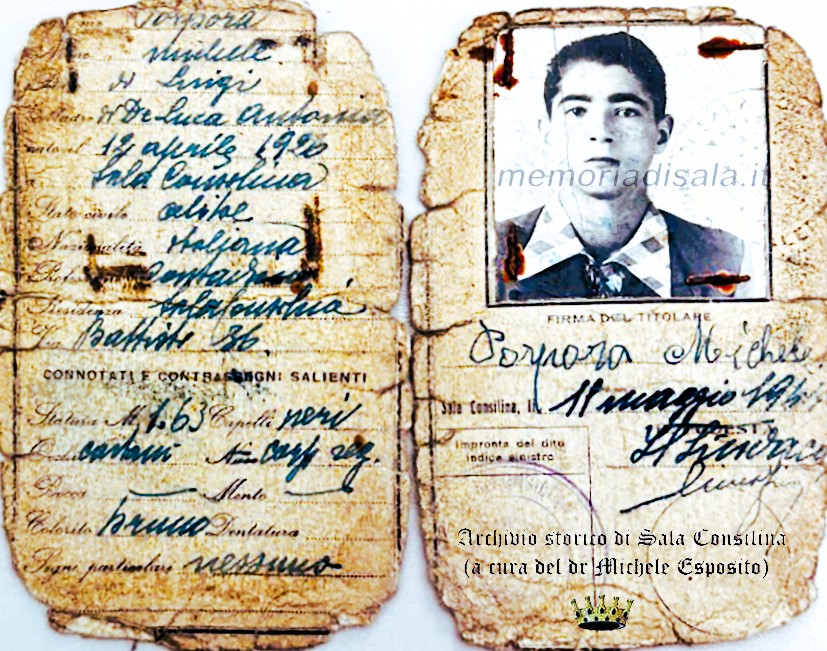 Porpora
Nome Michele
di Luigi
Madre di De Luca Antonia
nato il 12 aprile 1926
a Sala Consilina
Stato civile celibe
Nazionalità italiana
Contadino
Residenza Sala Consilina
Via Battisti 36
CONNOTATI E CONTRASSEGNI SALIENTI
Statura M. 1.63 Capelli neri
Occhi castani Naso reg.
Bocca — Mento —
Colorito bruno Dentatura
Segni particolari nessuno
memoriadisala.it
FIRMA DEL TITOLARE
Porpora Michele
Sala Consilina, li 11 maggio
Il Sindaco
Impronta del dito
indice sinistro
Archivio storico di Sala Consilina
(a cura del dr Michele Esposito)